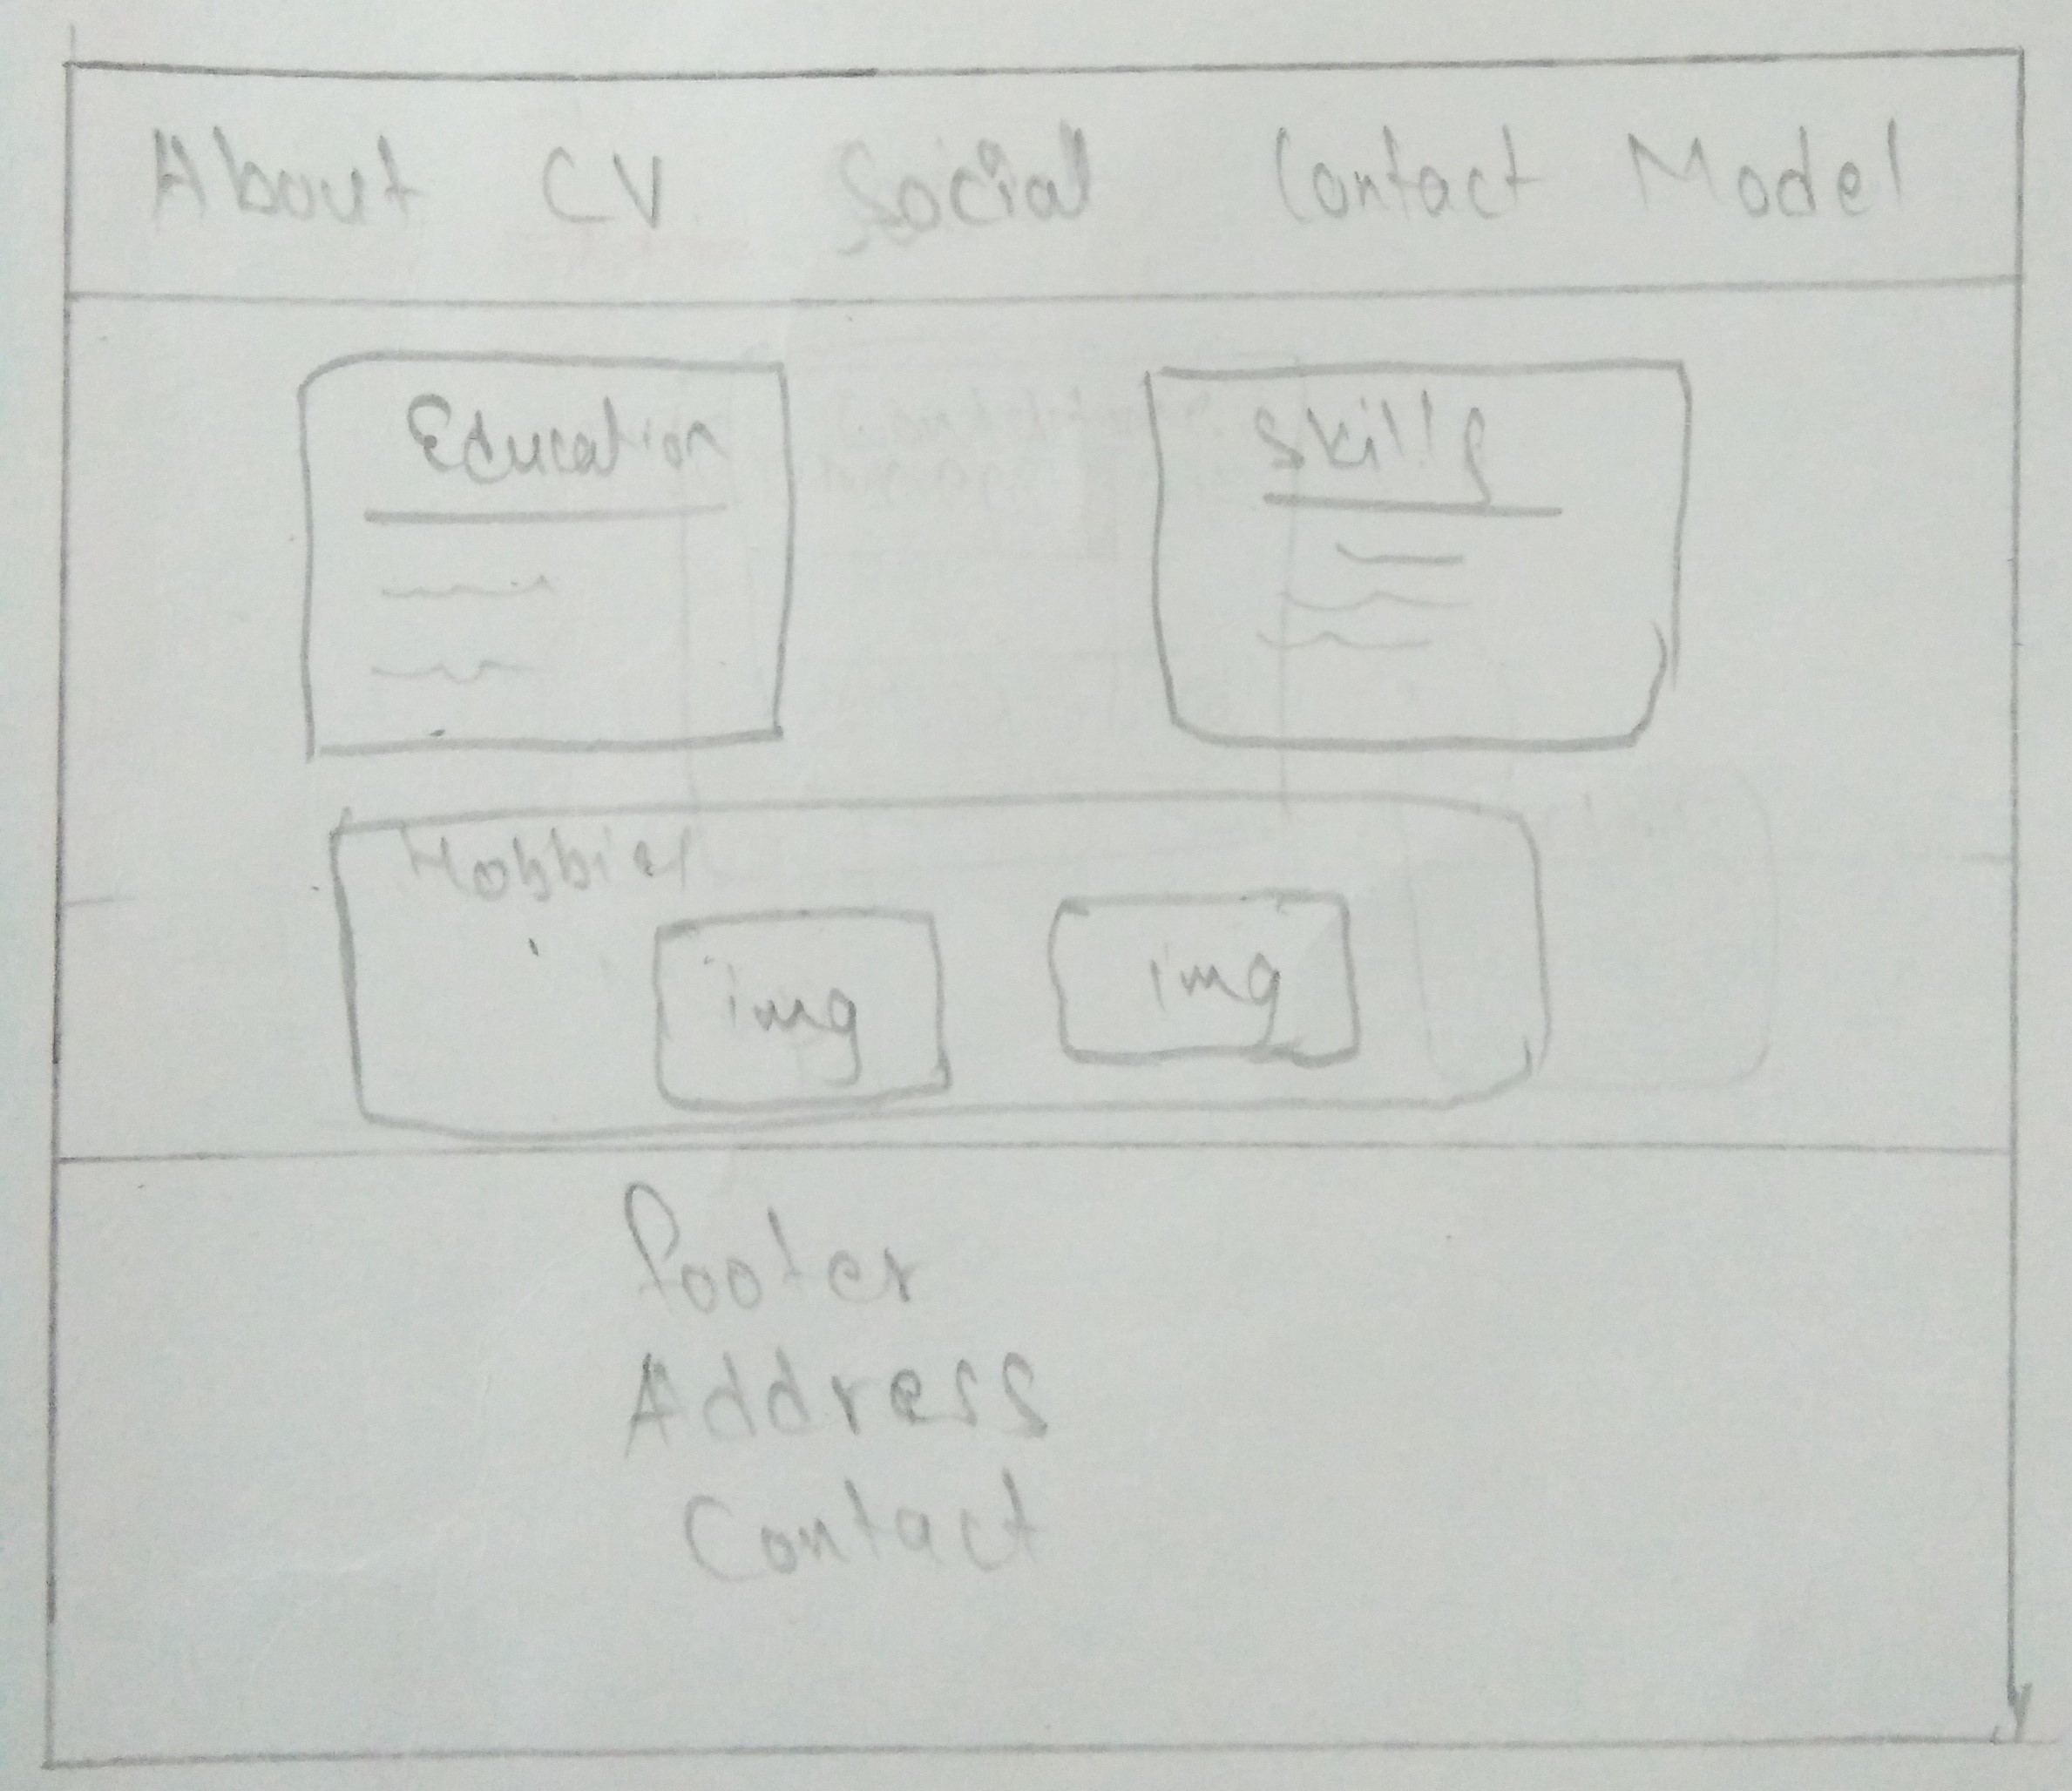 About CV Social Contact Model
Education Skills
Hobbies
img img
Footer
Address
Contact